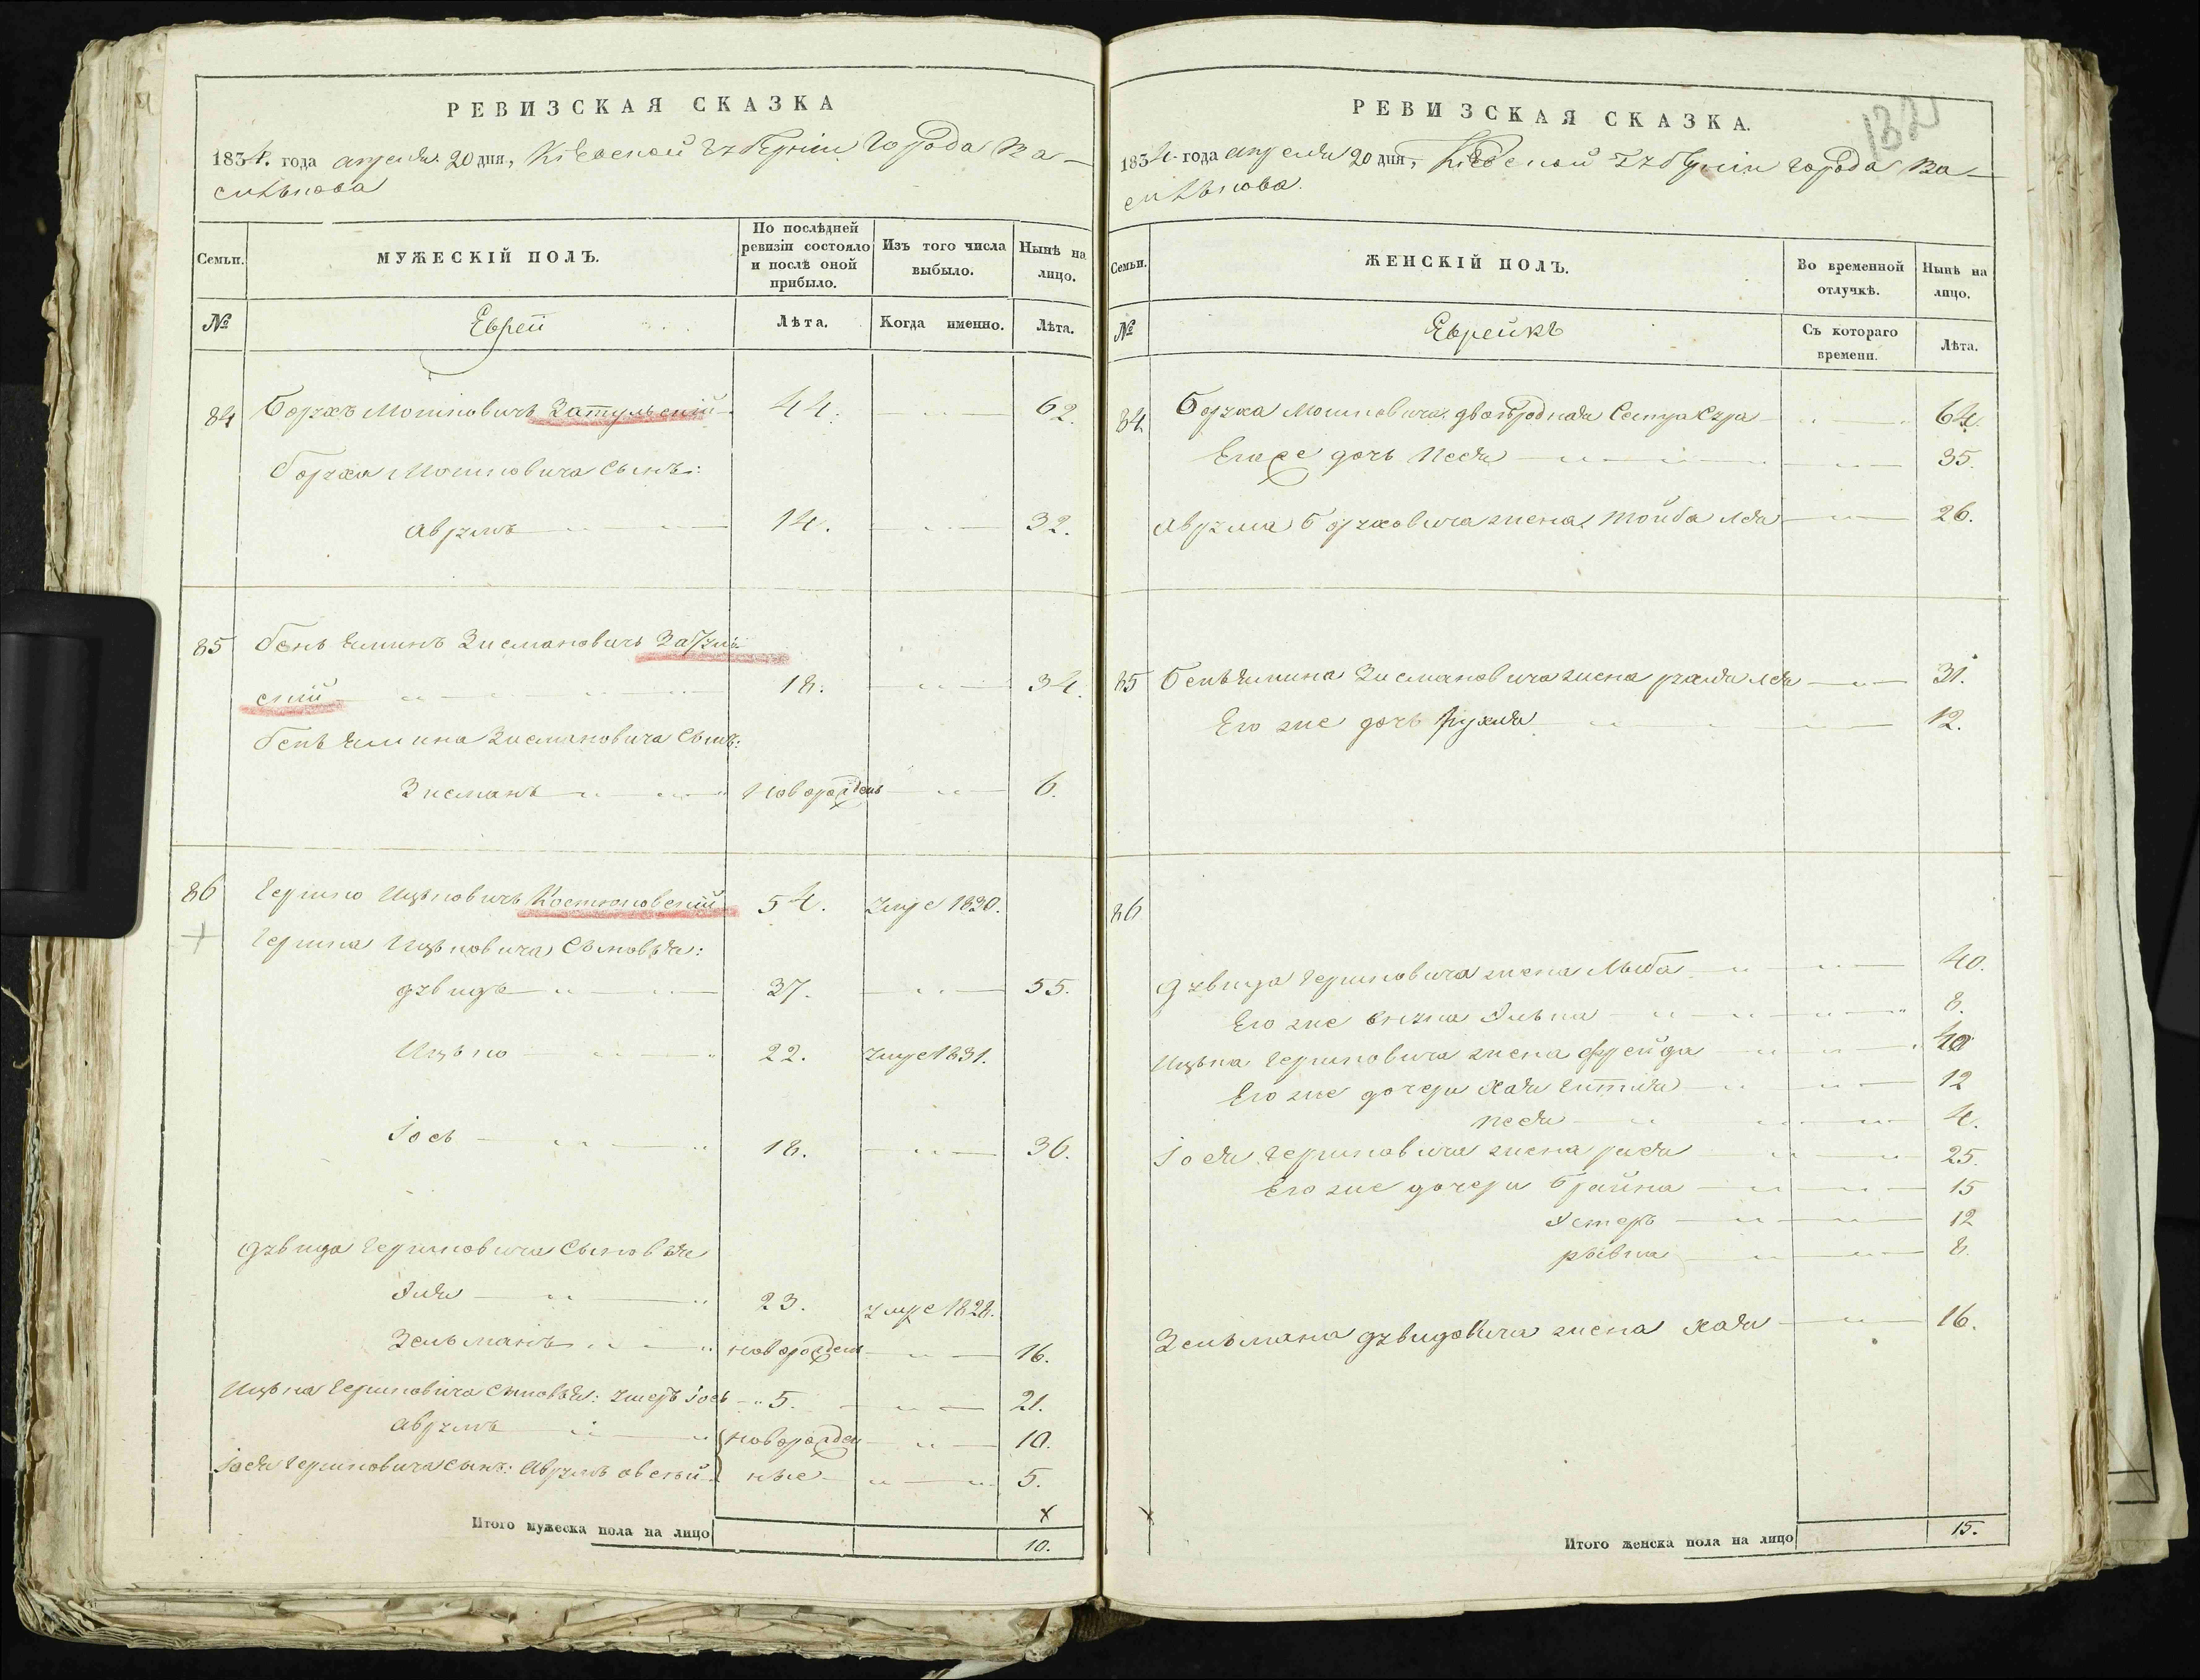 РЕВИЗСКАЯ СКАЗКА
1834. года апреля 20 дня, Кіевской губерніи города Ва-
силькова
Семьи. МУЖЕСКІЙ ПОЛЪ. По послѣдней ревизіи состояло и послѣ оной прибыло. Изъ того числа выбыло. Нынѣ на лицо.
№ Еврей Лѣта. Когда именно. Лѣта.
84 Борухъ Мошковичъ Затульскій 44. 62.
Боруха Мошковича сынъ:
Аврумъ 14. 32.
85 Беньяминъ Зисмановичъ
скій 18. 34.
Беньямина Зисмановича сынъ:
Зисманъ новорожденъ 6.
86 Гершко Ицьковичъ 54. умре 1820.
Гершка Ицьковича сыновья:
Дувидъ 37. 55.
Ицько 22. умре 1831.
Іось 18. 36.
Дувида Гершковича сыновья
23. умре 1828.
Зельманъ новорожден 16.
Ицька Гершковича сыновья: Іось 5. 21.
Аврумъ новорожден 10.
Іося Гершковича сынъ: Аврумъ ные 5.
Итого мужеска пола на лицо 10.
РЕВИЗСКАЯ СКАЗКА.
132
1834 года апреля 20 дня, Кіевской губерніи города Ва-
силькова.
Семьи. ЖЕНСКІЙ ПОЛЪ. Во временной отлучкѣ. Нынѣ на лицо.
№ Еврейкѣ Съ котораго времени. Лѣта.
84 Боруха Мошковича двоюродная сестра Сура 64.
Ея же дочь Песя 35.
Аврума Борухковича жена Тойба Лея 26.
85 Беньямина Зисмановича жена Лея 31.
Его же дочь Рухля 12.
86
Дувида Гершковича жена 40.
Его же внука 8.
Ицька Гершковича жена Фрейда 40
Его же дочери Хая Гитля 12
Песя 4.
Іося Гершковича жена 25.
Его же дочери Брайна 15
Эстеръ 12
Рывка 8.
Зельмана Дувидовича жена Хая 16.
Итого женска пола на лицо 15.